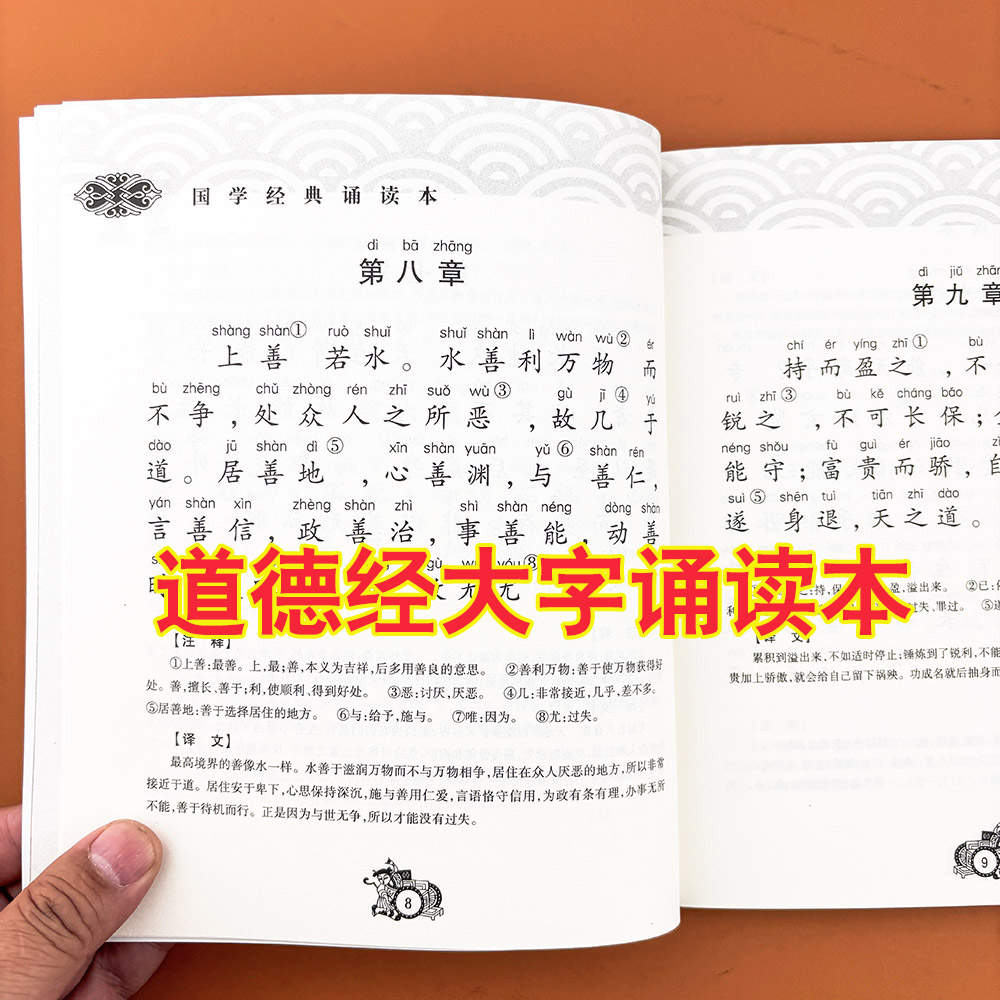 国学经典诵读本
dì bā zhāng
第八章
shàng shàn① ruò shuǐ shuǐ shàn lì wàn wù② ér
上善 若水。水善利万物 而
bù zhēng chǔ zhòng rén zhī suǒ wù③ gù jī④ yú
不争,处众人之所恶 ,故几 于
dào jū shàn dì⑤ xīn shàn yuān yǔ⑥ shàn rén
道。居善地 ,心善渊,与 善仁,
yán shàn xìn zhèng shàn zhì shì shàn néng dòng shàn
言善信,政善治,事善能,动善
道德经大字诵读本
【注 释】
①上善:最善。上,最;善,本义为吉祥,后多用善良的意思。 ②善利万物:善于使万物获得好
处。善,擅长、善于;利,使顺利、得到好处。 ③恶:讨厌,厌恶。 ④几:非常接近,几乎,差不多。
⑤居善地:善于选择居住的地方。 ⑥与:给予,施与。 ⑦唯:因为。 ⑧尤:过失。
【译 文】
最高境界的善像水一样。水善于滋润万物而不与万物相争,居住在众人厌恶的地方,所以非常
接近于道。居住安于卑下,心思保持深沉,施与善用仁爱,言语恪守信用,为政有条有理,办事无所
不能,善于待机而行。正是因为与世无争,所以才能没有过失。
8
dì jiǔ
第九章
chí ér yíng zhī① bù
持而盈之 ,不
ruì zhī③ bù kě cháng bǎo
锐之 ,不可长保;
néng shǒu fù guì ér jiāo
能守;富贵而骄,自
suì⑤ shēn tuì tiān zhī dào
遂 身退,天之道。
盈,溢出来。 ②已:
过失、罪过。
译 文】
累积到溢出来,不如适时停止;锤炼到了锐利,不能
贵加上骄傲,就会给自己留下祸殃。功成名就后抽身而
9